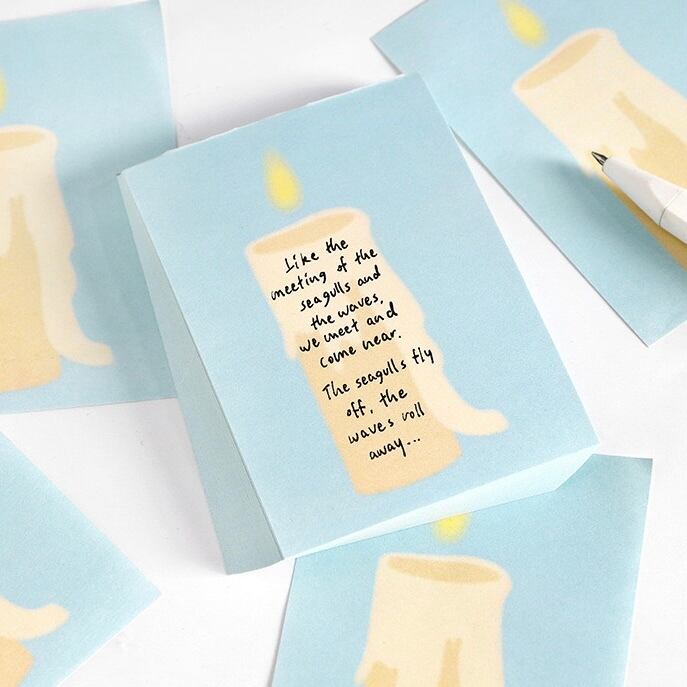 Like the
meeting of the
seagulls and
the waves,
we meet and
come near.
The seagulls fly
off, the
waves roll
away...